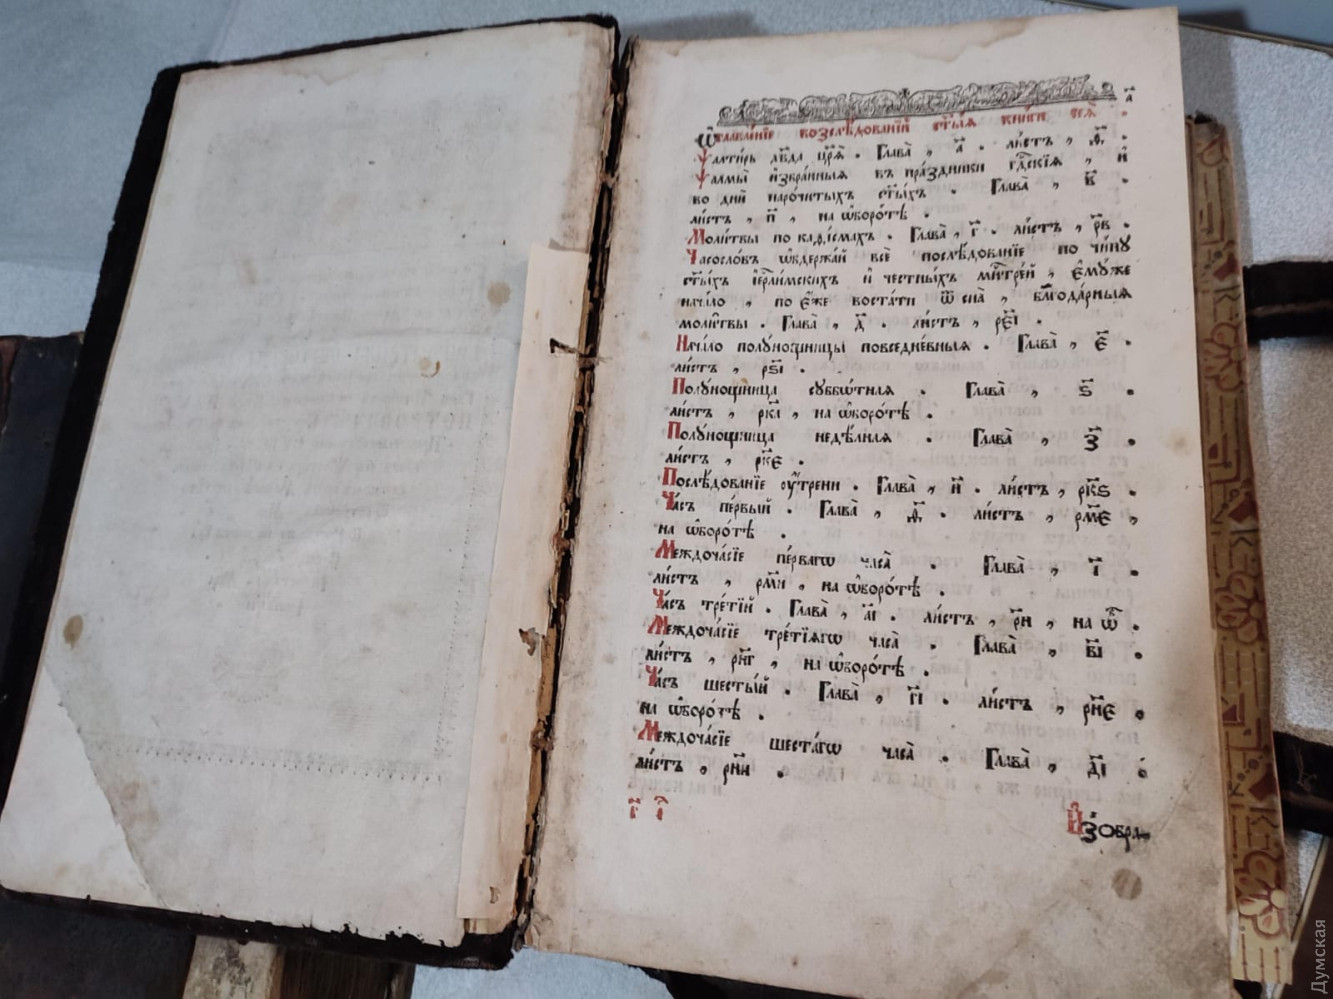 а҃
Ѡ҆главле́нїе возслѣ́дованїй ст҃ы́ѧ кни́ги сеѧ̀
Ѱалти́рь дв҃да цр҃ѧ̀ . Глава̀ , а҃ . ли́стъ , ѳ҃ .
Ѱалмы̀ и҆збра́нныѧ въ пра́здники гд҇скїѧ , и҆
во дни̑ наро́читыхъ ст҃ы́хъ . Глава̀ , в҃ .
ли́стъ , п҃ , на ѡ҆боро́тѣ .
Моли́твы по каѳі́смахъ . Глава̀ , г҃ . ли́стъ , рв҃ .
Часосло́въ ѡ҆бдержа́й всѐ послѣ́дованїе по чи́нꙋ
ст҃ы́хъ і҆ерⷭ҇ли́мскихъ и҆ честны́хъ мнⷭ҇тре́й , є҆мꙋ́же
нача́ло , по є҆́же воста́ти ѿ сна̀ , благода́рныѧ
моли́твы . Глава̀ , д҃ . ли́стъ , реі҃ .
Нача́ло полꙋно́щницы повседне́вныѧ . Глава̀ , є҃ .
ли́стъ , рѕі҃ .
Полꙋно́щница сꙋббѡ́тнаѧ . Глава̀ , ѕ҃ .
ли́стъ , рка҃ , на ѡ҆боро́тѣ .
Полꙋно́щница недѣ́лнаѧ . Глава̀ , з҃ .
ли́стъ , рке҃ .
Послѣ́дованїе ᲂу҆́трени . Глава̀ , и҃ . ли́стъ , ркѕ҃ .
Ча́съ пе́рвый . Глава̀ , ѳ҃ . ли́стъ , рме҃ ,
на ѡ҆боро́тѣ .
Междоча́сїе пе́рвагѡ часа̀ . Глава̀ , і҃ .
ли́стъ , рми҃ , на ѡ҆боро́тѣ .
Ча́съ тре́тїй . Глава̀ , аі҃ . ли́стъ , рн҃ , на ѡ҆б .
Междоча́сїе тре́тїѧгѡ часа̀ . Глава̀ , ві҃
ли́стъ , рнг҃ , на ѡ҆боро́тѣ .
Ча́съ шесты́й . Глава̀ , гі҃ . ли́стъ , рне҃ .
на ѡ҆боро́тѣ .
Междоча́сїе шеста́гѡ часа̀ . Глава̀ , ді҃
ли́стъ , рни҃ .
И҆зобра-
Думская